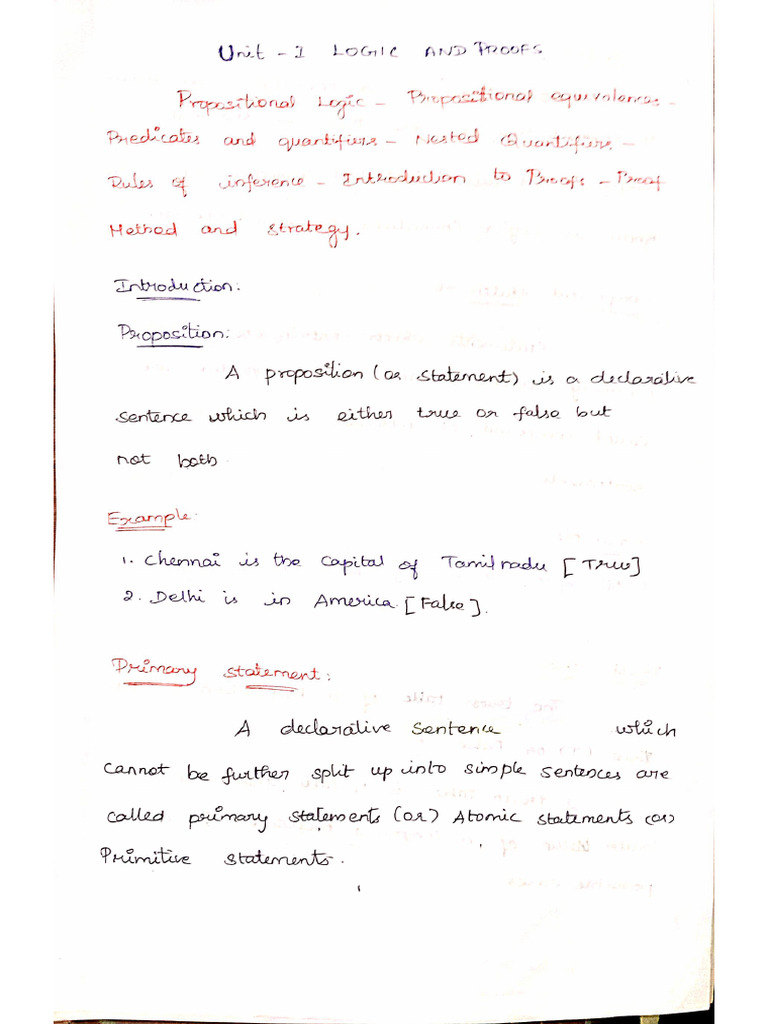 Unit - I LOGIC AND PROOFS
Propositional Logic - Propositional equivalences -
Predicates and quantifiers - Nested Quantifiers -
Rules of inference - Introduction to Proofs - Proof
Method and strategy.
Introduction:
Proposition:
A proposition (or statement) is a declarative
sentence which is either true or false but
not both
Example:
1. Chennai is the Capital of Tamilnadu [True]
2. Delhi is in America [False].
Primary statement:
A declarative sentence which
cannot be further split up into simple sentences are
called primary statements (or) Atomic statements (or)
Primitive statements.